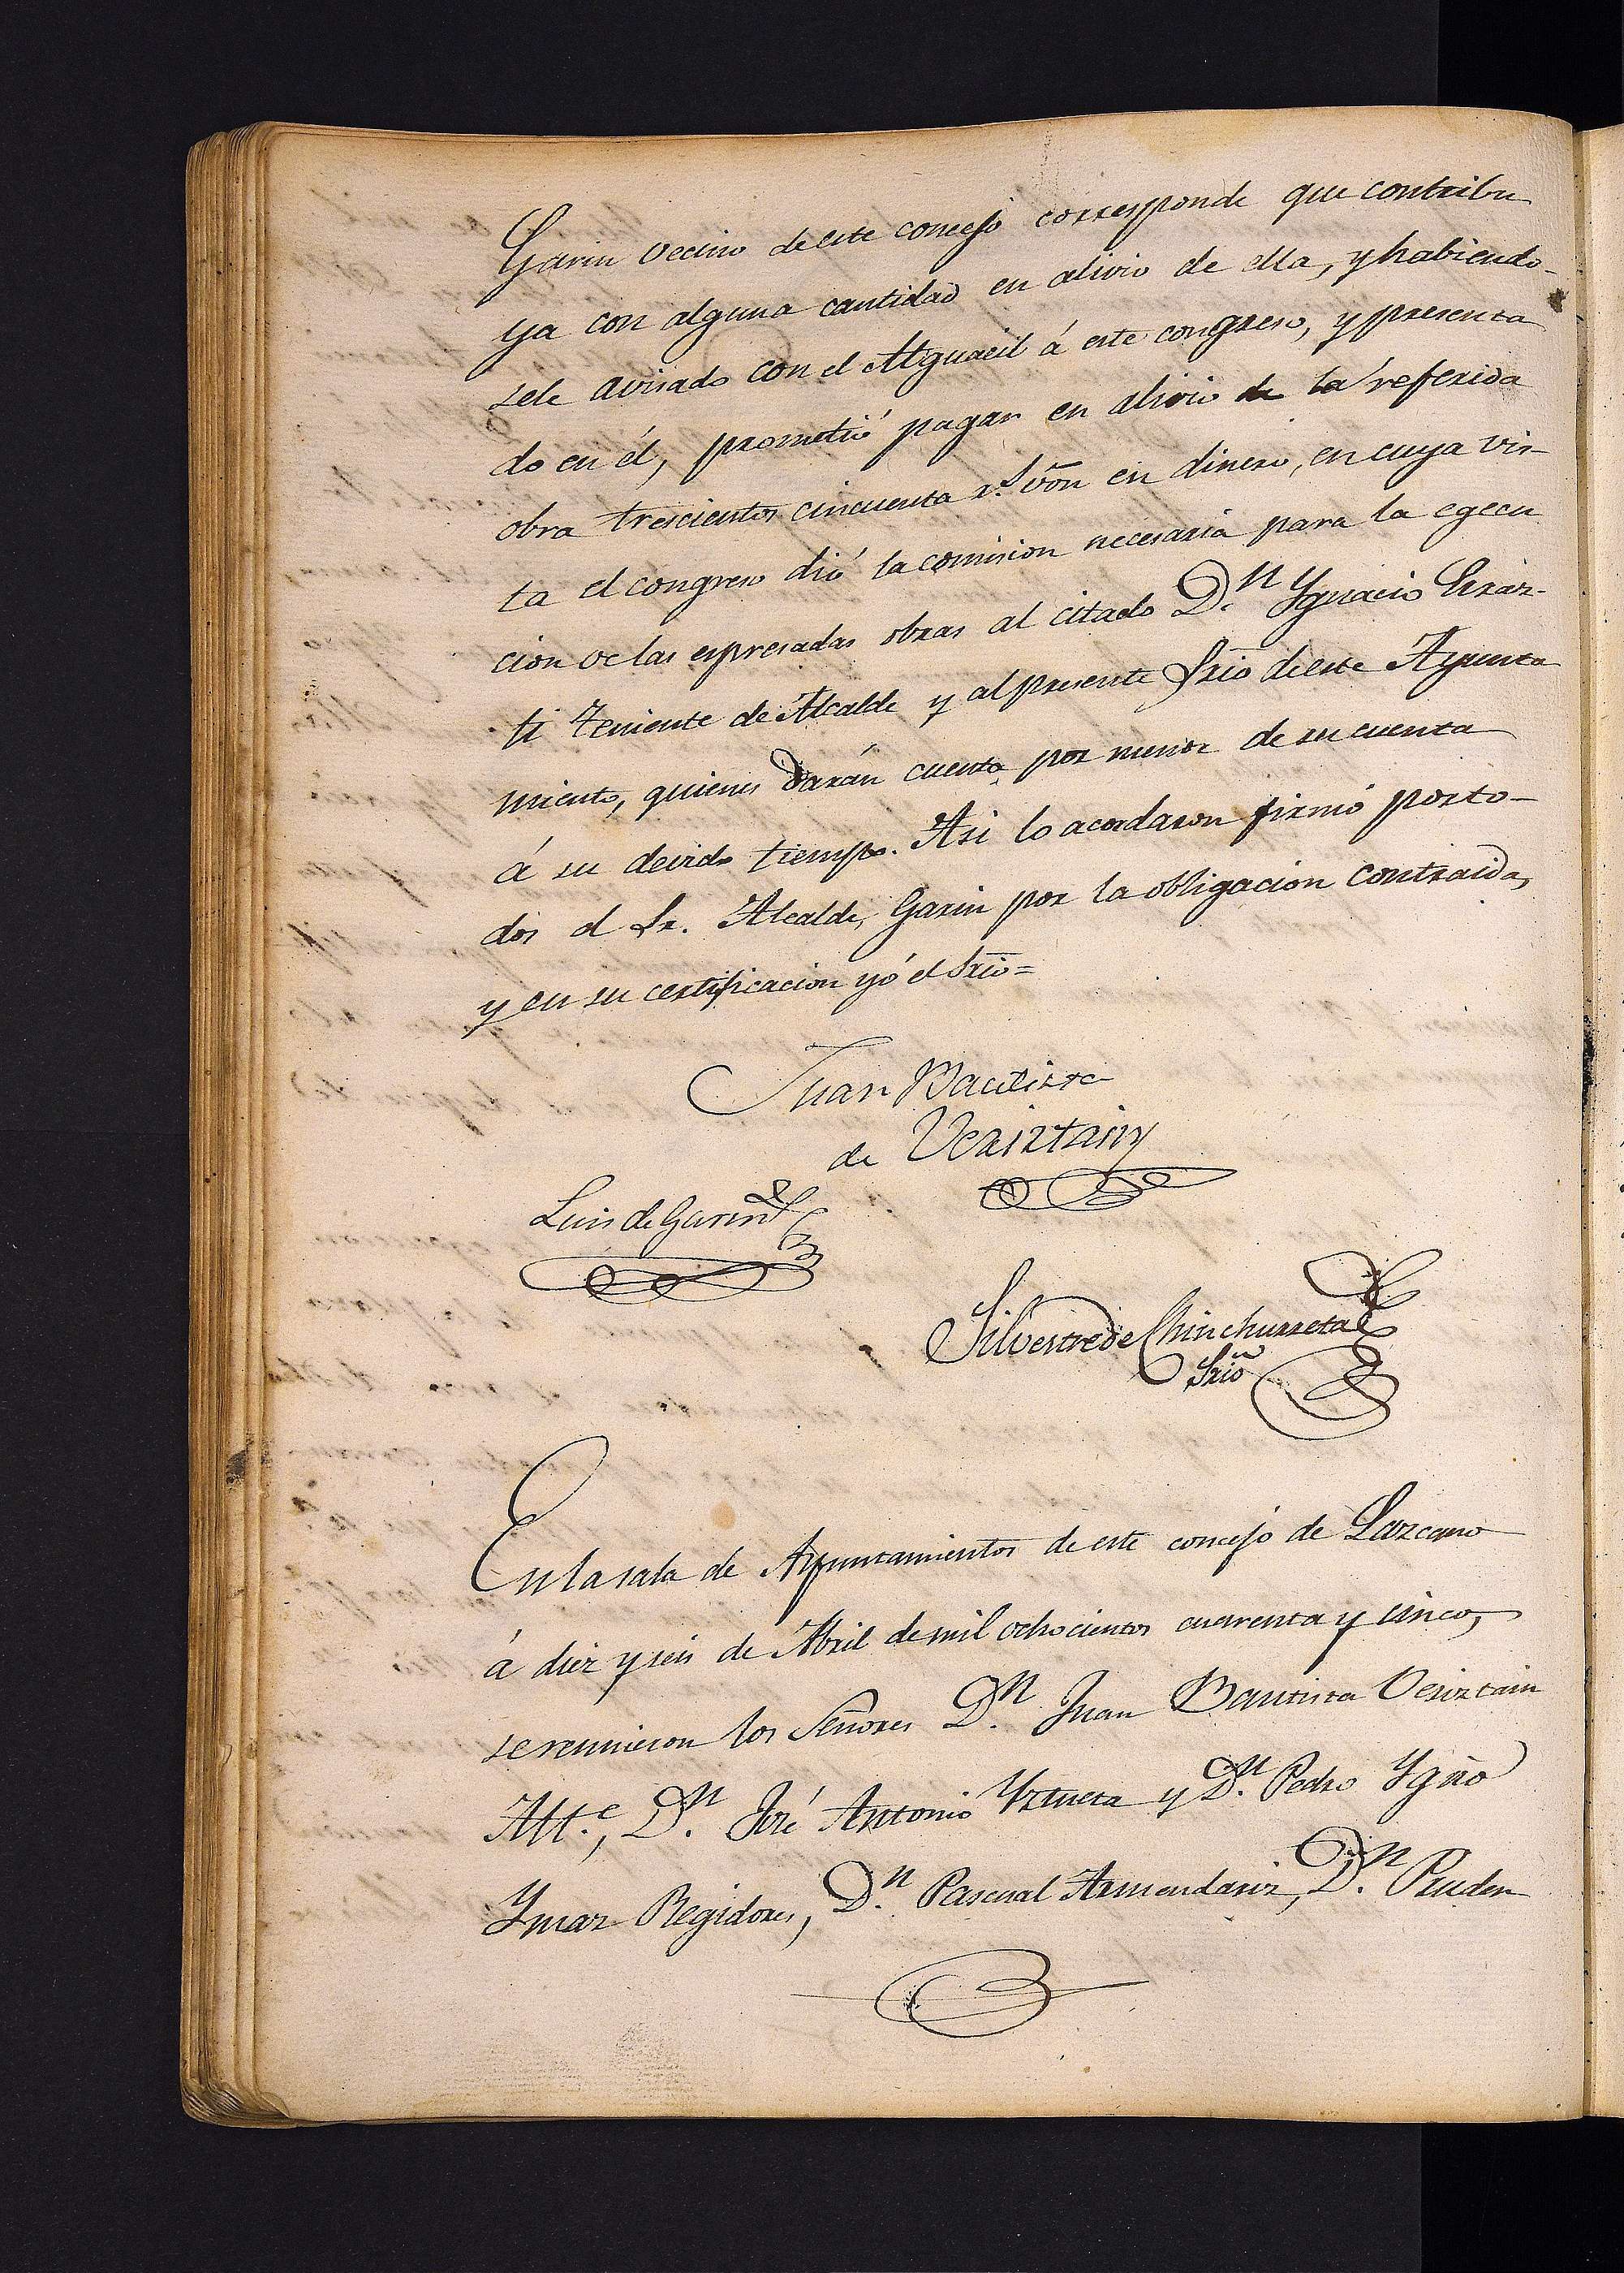 Garin vecino de este concejo corresponde que contribu
ya con alguna cantidad en alivio de ella, y habiendo-
sele avisado con el Alguacil á este congreso, y presenta
do en él, prometió pagar en alivio de la referida
obra trescientos cincuenta r.s von en dinero, en cuya vis-
ta el congreso dió la comision necesaria para la egecu
cion de las espresadas obras al citado D.n Ygnacio
ti Teniente de Alcalde y al presente Srio de este Ayunta
miento, quienes darán cuenta por menor de su cuenta
á su devido tiempo. Asi lo acordaron firmó por to-
dos el Sr. Alcalde, Garin por la obligacion contraida,
y en su certificacion yó el Srio=
Juan Bautista
de Veriztain
Luis de Garin
Silvestre de Chinchurreta
Srio
En la sala de Ayuntamientos de este concejo de Lazcano
á diez y seis de Abril de mil ochocientos cuarenta y cinco,
se reunieron los Señores D.n Juan Bautista Veriztain
Alt.e, D.n José Antonio Yztueta y D.n Pedro Ygno
Ymaz Regidores, D.n Pascual Armendariz, D.n Pruden